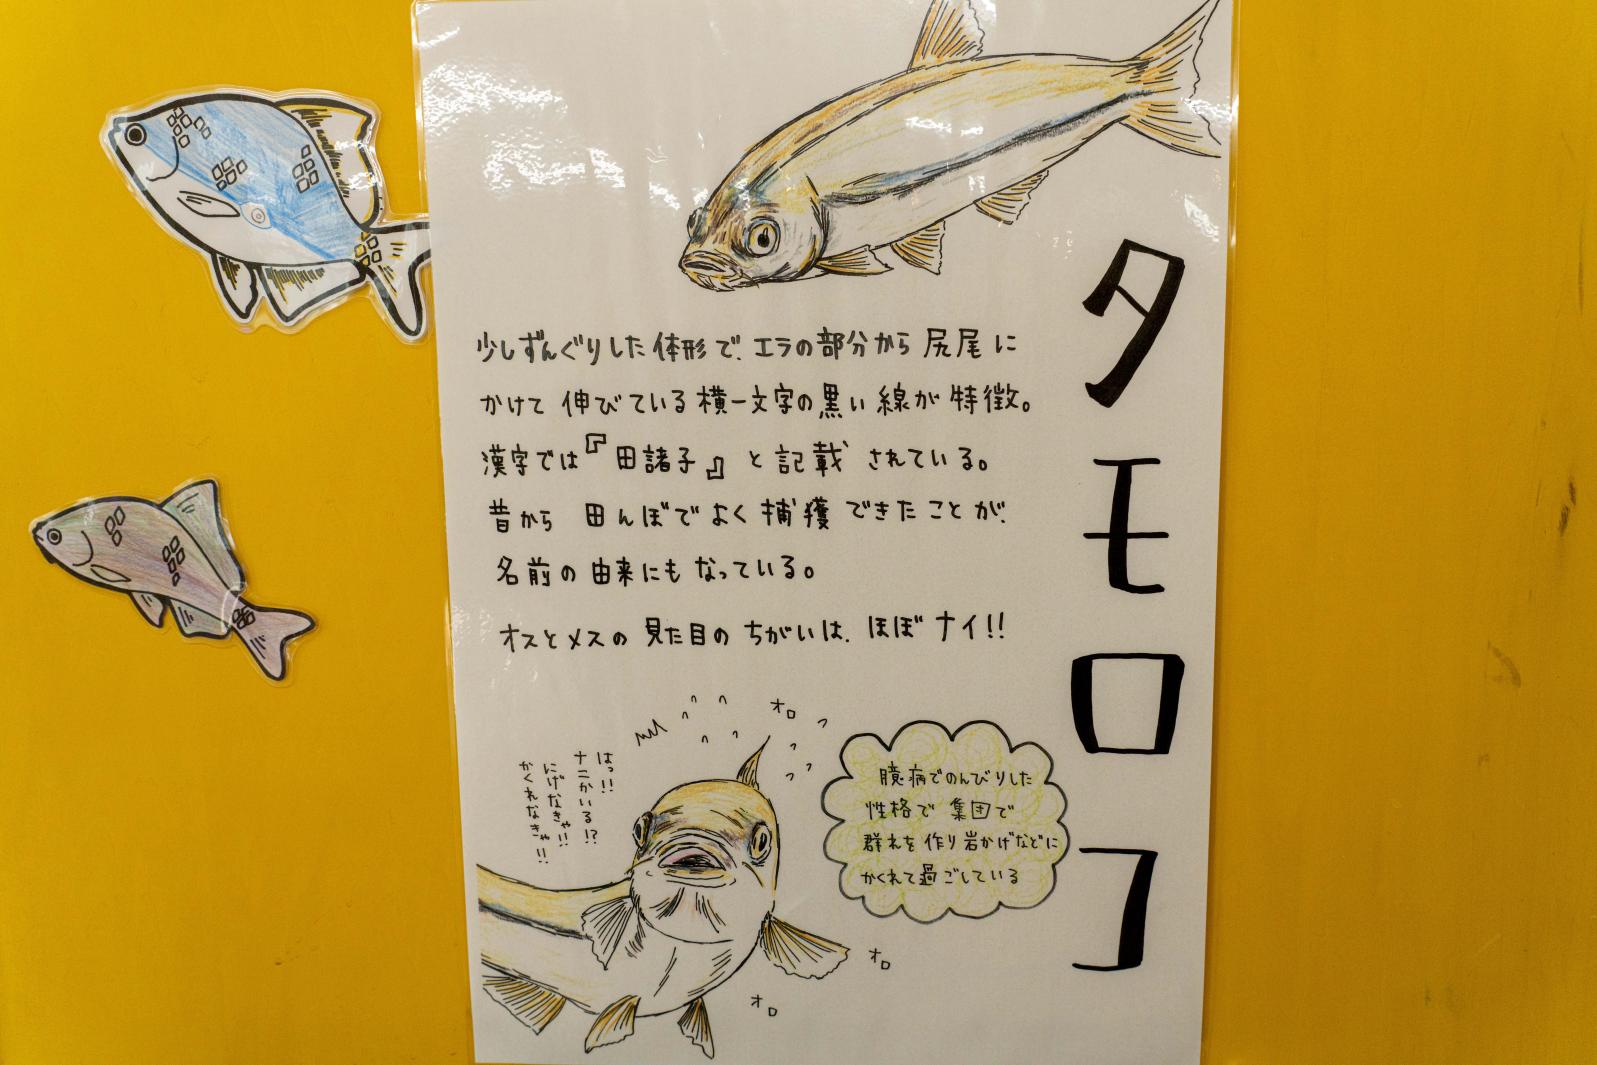 タモロコ
少しずんぐりした体形で、エラの部分から尻尾に
かけて伸びている横一文字の黒い線が特徴。
漢字では『田諸子』と記載されている。
昔から田んぼでよく捕獲できたことが、
名前の由来にもなっている。
オスとメスの見た目のちがいは、ほぼナイ!!
はっ!!
ナニかいる!?
にげなきゃ!!
かくれなきゃ!!
オロ
臆病でのんびりした
性格で集団で
群れを作り岩かげなどに
かくれて過ごしている
オロ
オロ